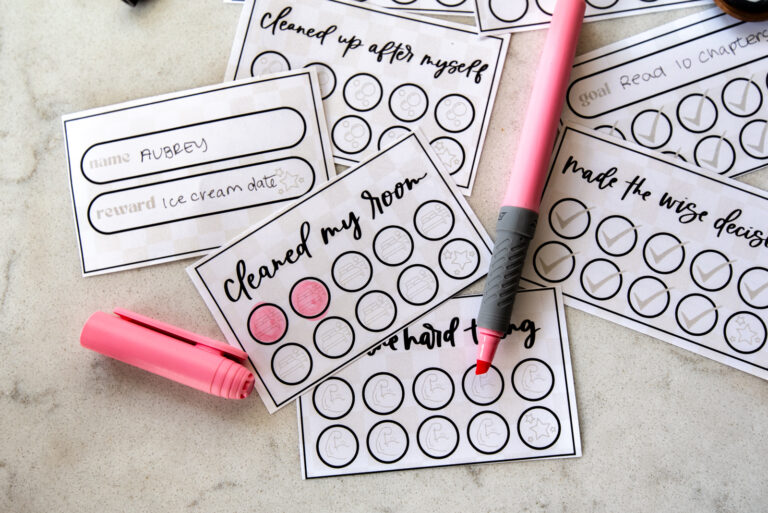 cleaned up after myself
goal Read 10 Chapters
name AUBREY
reward Ice cream date
cleaned my room
made the wise
hard